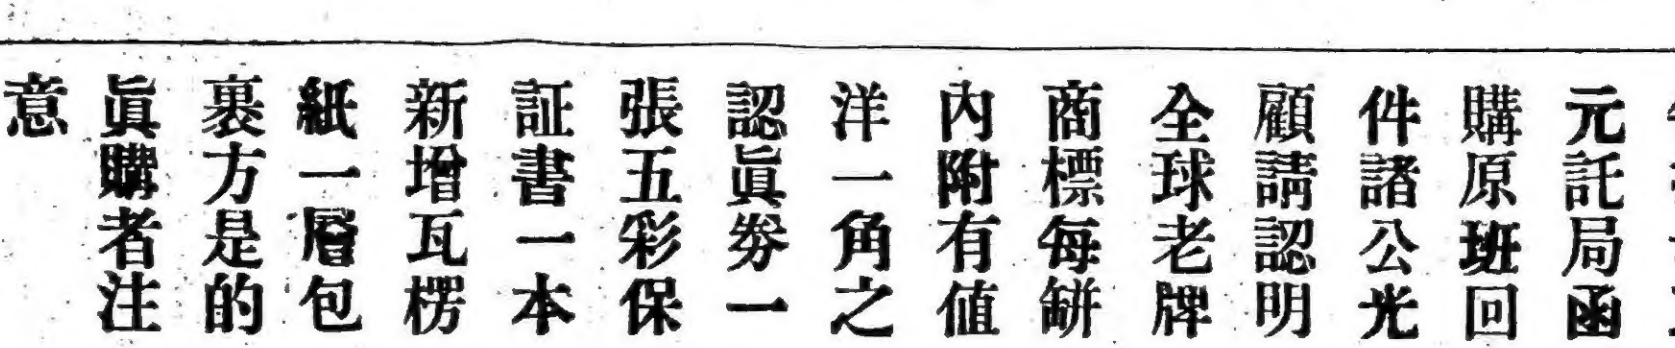 元託局函
購原班回
件諸公光
顧請認明
全球老牌
商標每缾
內附有值
洋一角之
認眞劵一
張五彩保
証書一本
新增瓦楞
紙一層包
裹方是的
眞購者注
意